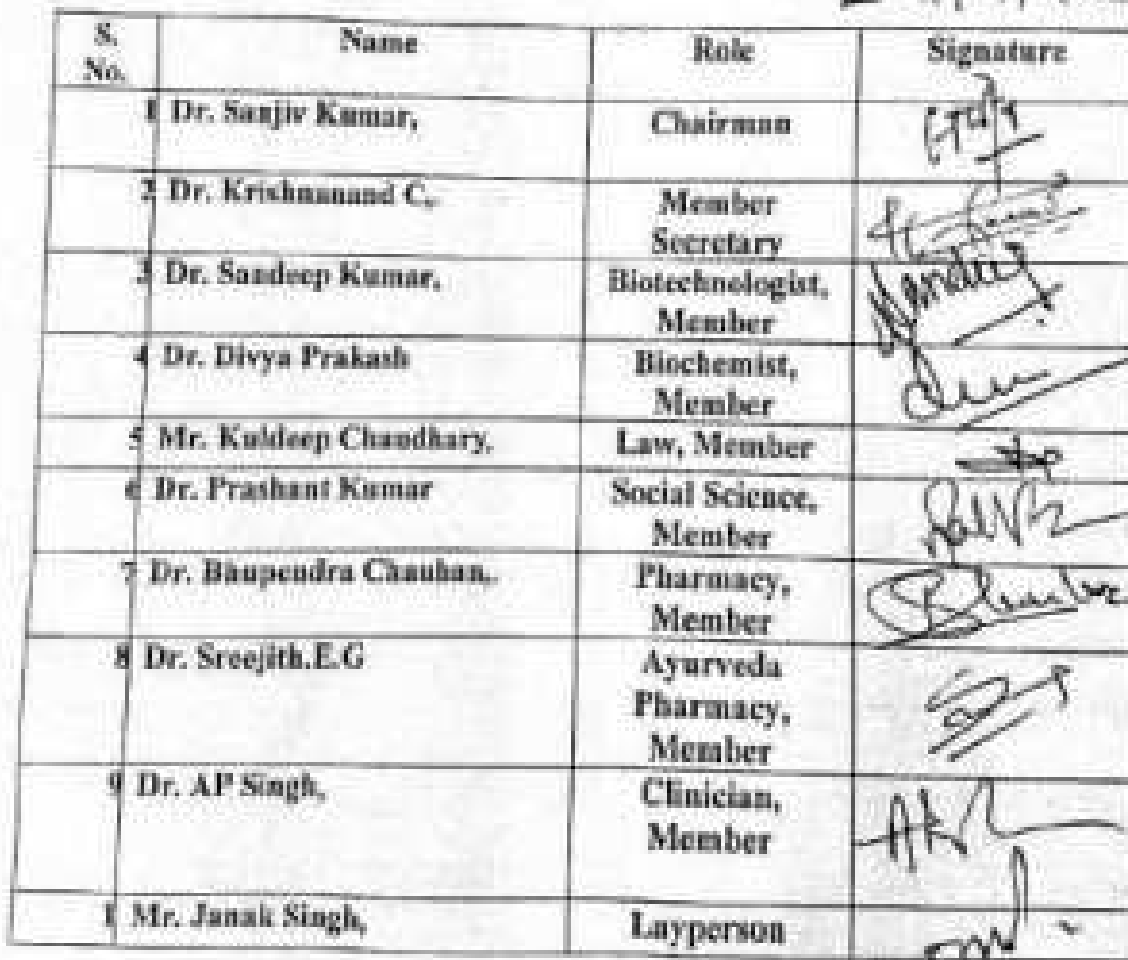 S. No. Name Role Signature
1 Dr. Sanjiv Kumar, Chairman
2 Dr. Krishnanand C,. Member
Secretary
3 Dr. Sandeep Kumar, Biotechnologist,
Member
4 Dr. Divya Prakash Biochemist,
Member
5 Mr. Kuldeep Chaudhary, Law, Member
6 Dr. Prashant Kumar Social Science,
Member
7 Dr. Bhupendra Chauhan,. Pharmacy,
Member
8 Dr. Sreejith.E.G Ayurveda
Pharmacy,
Member
9 Dr. AP Singh, Clinician,
Member
1 Mr. Janak Singh, Layperson